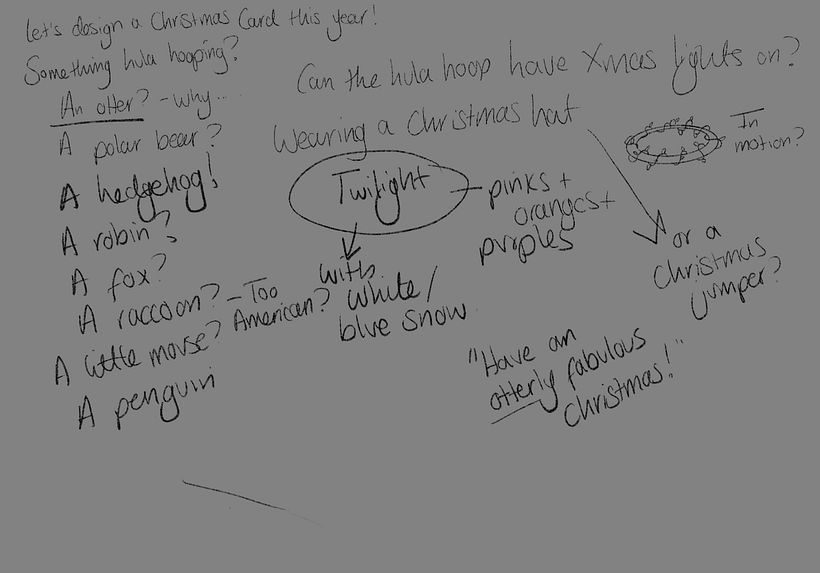 Let's design a Christmas Card this year!
Something hula hooping?
An otter? - why...
A polar bear?
A hedgehog!
A robin?
A fox?
A raccoon? - Too American?
A little mouse?
A penguin
Can the hula hoop have Xmas lights on?
Wearing a Christmas hat
In motion?
or a Christmas jumper?
Twilight
pinks +
oranges +
purples
with
white/
blue snow
"Have an
otterly fabulous
christmas!"